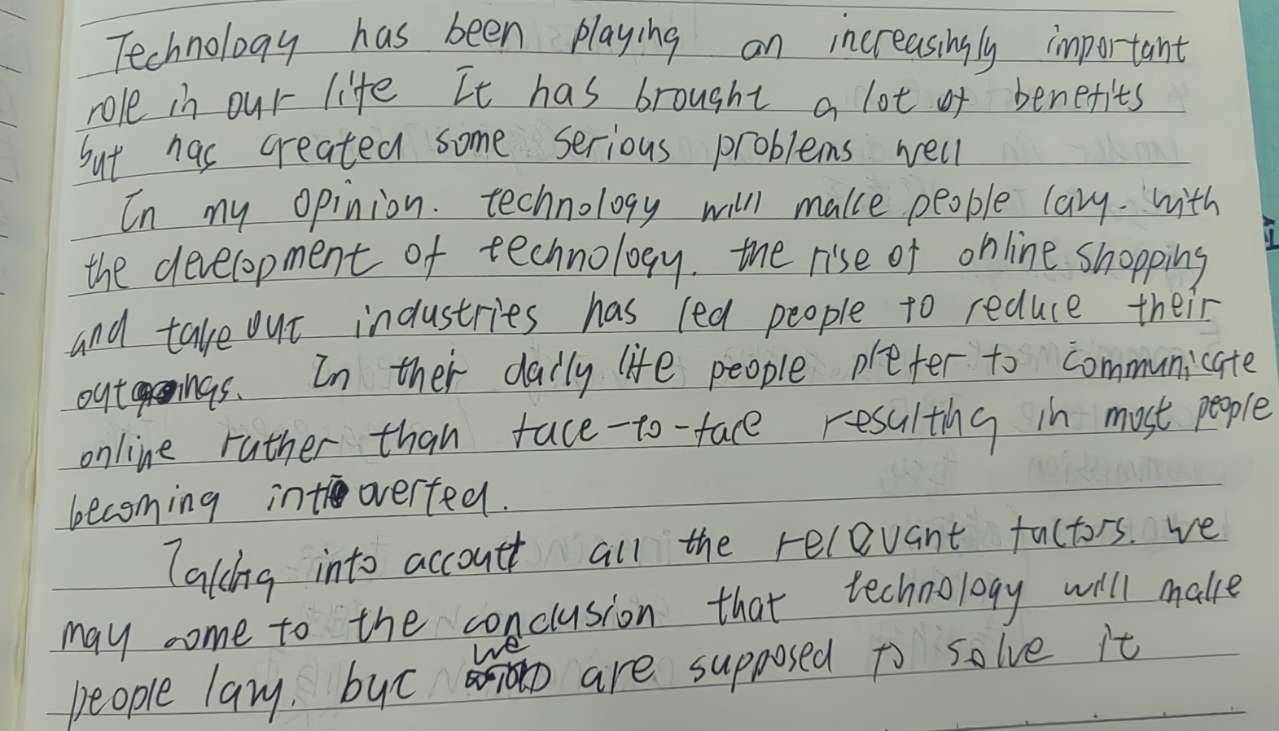 Technology has been playing an increasingly important
role in our life It has brought a lot of benefits
but has created some serious problems well
In my opinion. technology will make people lazy. with
the development of technology. the rise of online shopping
and take out industries has led people to reduce their
outgoings. In their daily life people prefer to communicate
online rather than face-to-face resulting in most people
becoming introverted.
Taking into accoutt all the relevant factors. we
may come to the conclusion that technology will make
people lazy. but we are supposed to solve it